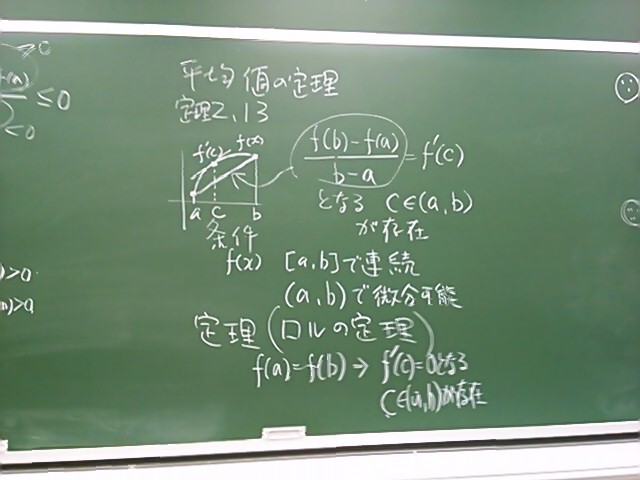 ≤0
<0
>0
)>0
平均値の定理
定理2.13
f'(c) f(x)
a c b
f(b)-f(a)
b-a
=f'(c)
となる c∈(a,b)
が存在
条件
f(x) [a,b]で連続
(a,b)で微分可能
定理(ロルの定理)
f(a)=f(b)→f'(c)=0となる
c∈(a,b)が存在